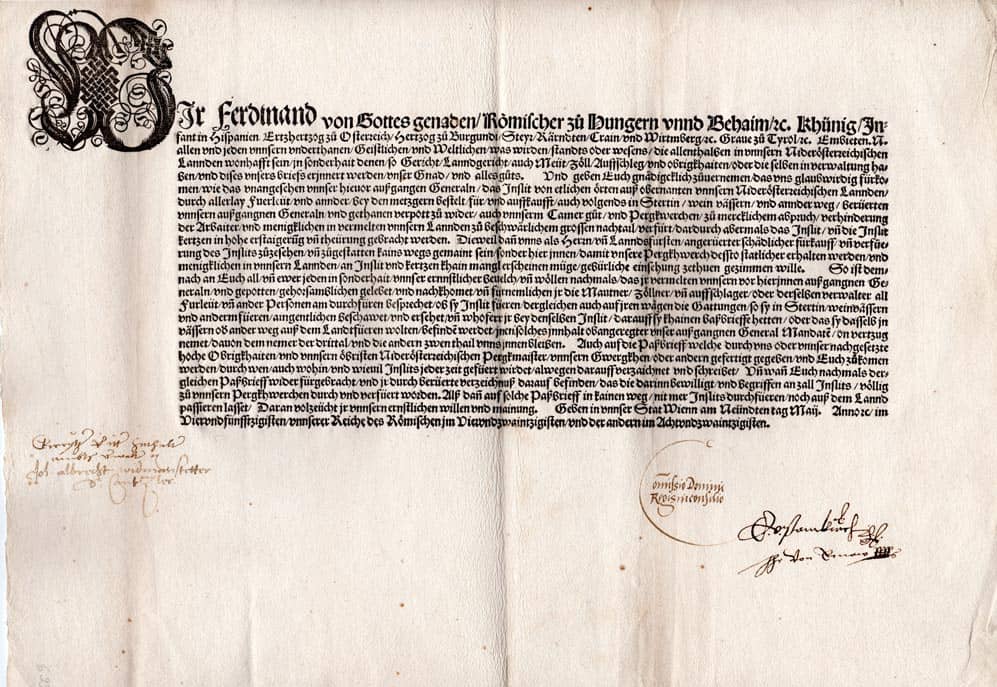 WIr Ferdinand von Gottes genaden/Römischer zů Hungern vnnd Behaim/ꝛc. Khünig/In-
fant in Hispanien/Ertzhertzog zů Osterreich/Hertzog zů Burgundi/Steyr/Kärndten/Crain/vnd Wirtmberg/ꝛc. Graue zů Tyrol/ꝛc. Embieten. N.
allen vnd jeden vnnsern vnderthanen/Geistlichen/vnd Weltlichen/was wirden/standts oder wesens/die allenthalben in vnnsern Niderösterreichischen
Lannden wonhafft sein/jn sonderhait denen/so Gericht/Lanndgericht/auch Meüt/Zöll/Auffschleg/vnd obrigkhaiten/oder die selben in verwaltung ha-
ben/vnd dises vnsers briefs erjnnert werden/vnser Gnad/vnd alles gůts. Vnd geben Euch gnädigcklich zůuernemen/das vns glaubwirdig fürko-
men/wie das vnangesehen vnnser hieuor außgangen Generaln/das Inslit von etlichen örten auß obernanten vnnsern Niderösterreichischen Lannden/
durch allerlay Fuerleüt/vnd annder/bey den metzgern bestelt/für vnd auffkaufft/auch volgends in Stertin/wein vässern/vnd annder weg/berüerten
vnnsern außgangnen Generaln/vnd gethanen verpott zů wider/auch vnnserm Camer gůt/vnd Pergkwerchen/zů mercklichem abpruch/verhinderung
der Arbaiter/vnd menigklichen in vermelten vnnsern Lannden zů beschwärlichem grossen nachtail verfürt/dardurch abermals das Inslit/vñ die Inslit
kertzen in hohe erstaigerüg vñ theürung gebracht werden. Dieweil dañ vnns als Herrn/vñ Lanndsfürsten/angerüerter schädlicher fürkauff/vñ verfüe-
rung des Inslits zůzesehen/vñ zůgestatten kains wegs gemaint sein/sonder hier jnnen/damit vnsere Pergkhwerch dessto statlicher erhalten werden/vnd
menigklichen in vnnsern Lannden/an Inslit vnd kertzen khain mangl erscheinen müge/gebürliche einsehung zethuen gezimmen wille. So ist dem-
nach an Euch all/vñ ewer jeden in sonderhait vnser ernnstlicher beuelch/vñ wöllen nachmals/das jr vermelten vnnsern vor hierjnnen außgangen Ge-
neraln/vnd gepotten/gehorsamblichen gelebet/vnd nachkhomet/vñ fürnemlichen jr die Mautner/Zöllner/vñ auffschlager/oder derselben verwalter all
Fürleüt/vñ ander Personen am durchfüren besprechet/ob sy Inslit füeren/dergleichen auch auf jren wägen die Gattungen/so sy in Stertin/weinvässern
vnd anderm füeren/augentlichen Beschawet/vnd ersehet/vñ whofern jr bey denselben Inslit/darauff sy khainen baßbrieffe hetten/oder das sy dasselb jn
vässern ob ander weg auß dem Landt füeren wolten/befindẽ werdet/jnen solches innhalt obangeregter vnser außgangen General Mandatẽ/on vertzug
nemet/dauon dem nemer der drittail/vnd die andern zwen thail vnns jnnen bleiben. Auch auf die Paßbrieff welche durch vns oder vnnser nachgesetzte
hoche Obrigkhaiten/vnd vnnsern öbristen Niderösterreichischen Pergkmaister/vnnsern Gwergkhen/oder andern gefertigt gegeben/vnd Euch zůkomen
werden/durch wen/auch wohin/vnd wieuil Inslits jeder zeit gefüert wirdet/alwegen darauff verzaichnet vnd schreibet/ Vñ wañ Euch nachmals der-
gleichen Paßbrieff wider fürgebracht/vnd jr durch berüerte verzeichnuß darauf befinden/das die darinn bewilligt/vnd begriffen anzall Inslits/völlig
zů vnnsern Pergkhwerchen durch/vnd verfüert worden. Alß dañ auf solche Paßbrieff in kainen weg/nit mer Inslits durchfüeren/noch auß dem Lannd
passieren lasset/ Daran volzeücht jr vnnsern ernstlichen willen vnd mainung. Geben in vnser Stat Wienn am Neündten tag Maij. Anno ꝛc/im
Vierundfünfftzigisten/vnnserer Reiche des Römischen jm Vierundzwaintzigisten/vnd der andern im Achtundzwaintzigisten.
Commissio Domini
Regis in consilio